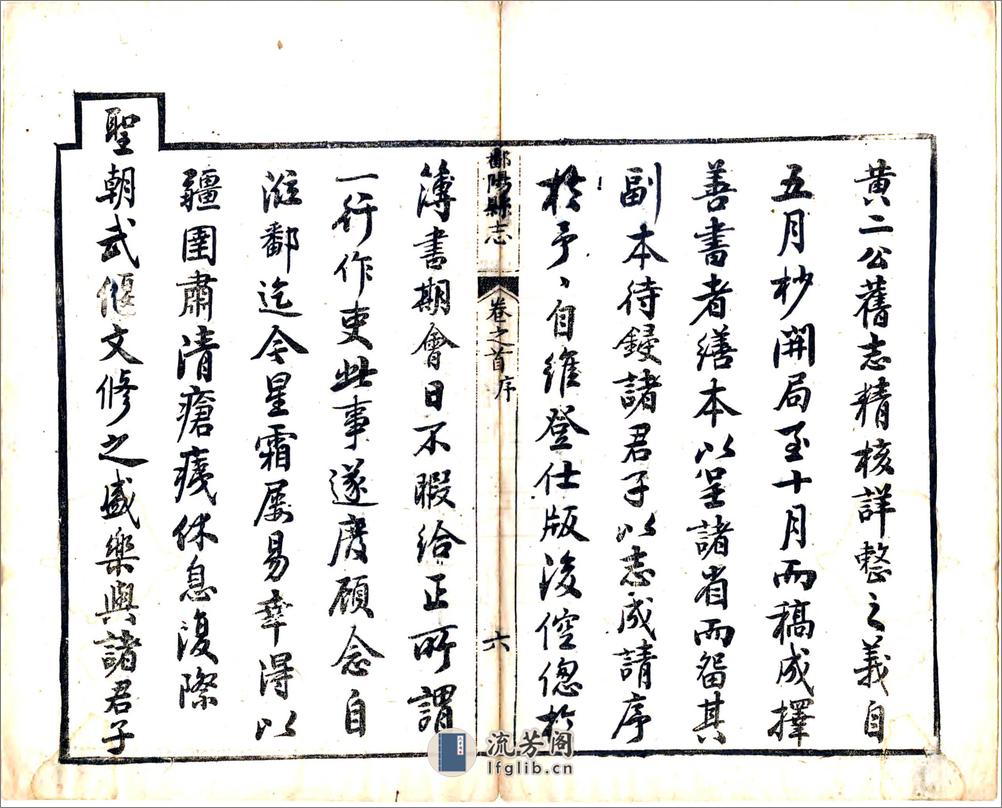 黄二公舊志精核詳整之義自
五月杪開局至十月而稿成擇
善書者繕本以呈諸省而留其
副本待鋟諸君子以志成請序
於予予自維登仕版後倥傯於
鄱陽縣志
卷之首序
六
簿書期會日不暇給正所謂
一行作吏此事遂廢顧念自
涖鄱迄今星霜屢易幸得以
疆圉肅清瘡痍休息復際
聖朝武偃文修之盛樂與諸君子
流芳阁
lfglib.cn